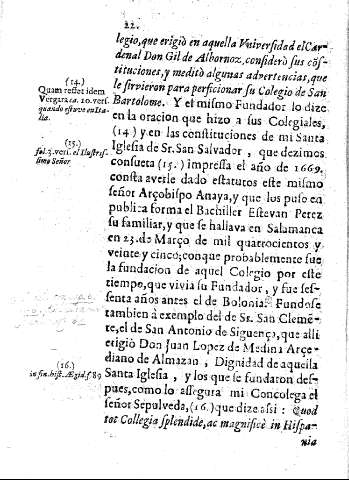 22.
legio, que erigiò en aquella Vniversidad el Car-
denal Don Gil de Albornoz, considerò sus cós-
tituciones, y meditò algunas advertencias, que
le sirvieron para perficionar su Colegio de San
Bartolome. Y el mismo Fundador lo dize
en la oracion que hizo a sus Colegiales,
(14) y en las constituciones de mi Santa
Iglesia de Sr. San Salvador, que dezimos
consueta (15.) impressa el año de 1669.
consta averle dado estatutos este mismo
señor Arçobispo Anaya, y que los puso en
publica forma el Bachiller Estevan Perez
su familiar, y que se hallava en Salamanca
en 23. de Março de mil quatrocientos y
veinte y cinco; conque probablemente fue
la fundacion de aquel Colegio por este
tiempo, que vivia su Fundador, y fue ses-
senta años antes el de Bolonia. Fundose
tambien à exemplo del de Sr. San Clemē-
te, el de San Antonio de Siguença, que alli
erigiò Don Juan Lopez de Medina Arçe-
diano de Almazan, Dignidad de aquella
Santa Iglesia, y los que se fundaron des-
pues, como lo assegura mi Concolega el
señor Sepulveda, (16.) que dize assi: Quod
tot Collegia splendide, ac magnificè in Hispa-
nia
(14.)
Quam restet idem
Vergara ca. 10. vers.
quando estuvo en Ita-
lia.
(15.)
fol. 3. vers. el Ilustris-
simo Señor.
(16.)
in fin. hist. Ægid. f. 89